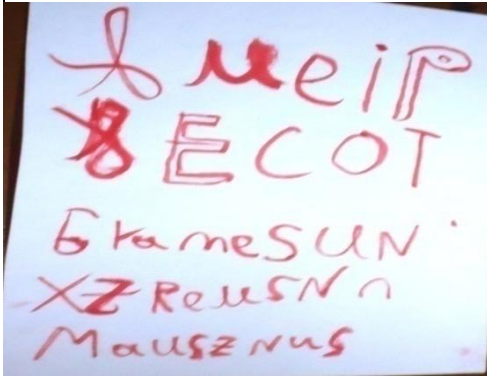 & ueip
& ECOT
GrameSUN.
XZReusNn
MauszNus